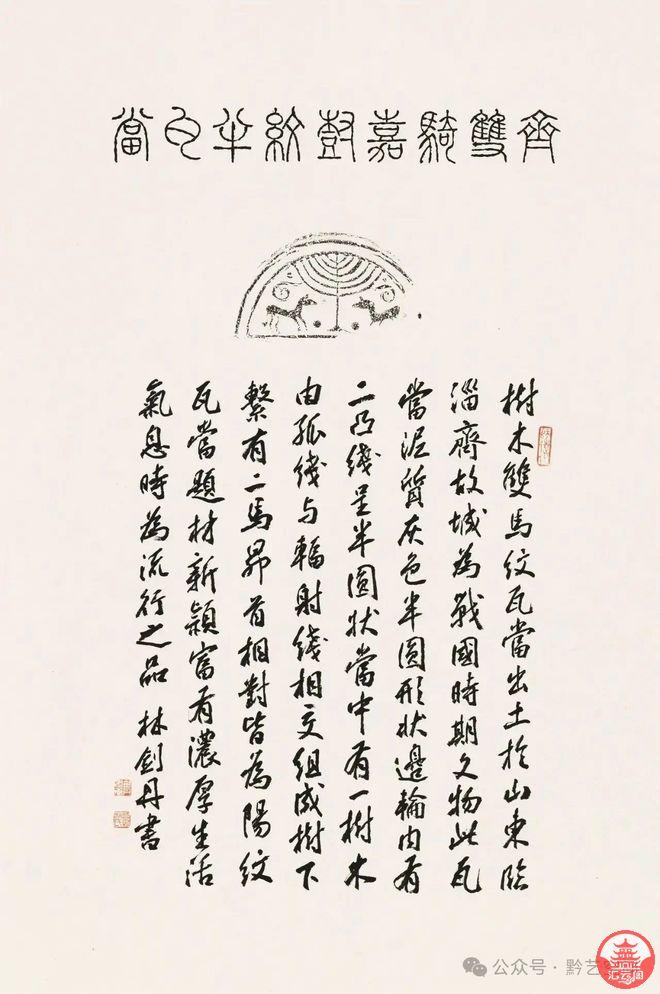 齊雙騎嘉尌紋半瓦當
樹木雙馬紋瓦當出土於山東臨
淄齊故城為戰國時期文物此瓦
當泥質灰色半圓形狀邊輪内有
二凸綫呈半圓狀當中有一樹木
由弧綫与輻射綫相交組成樹下
繫有二馬昂首相對皆為陽紋
瓦當題材新穎富有濃厚生活
氣息時為流行之品 林劍丹書
公众号·黔艺
汇云阁